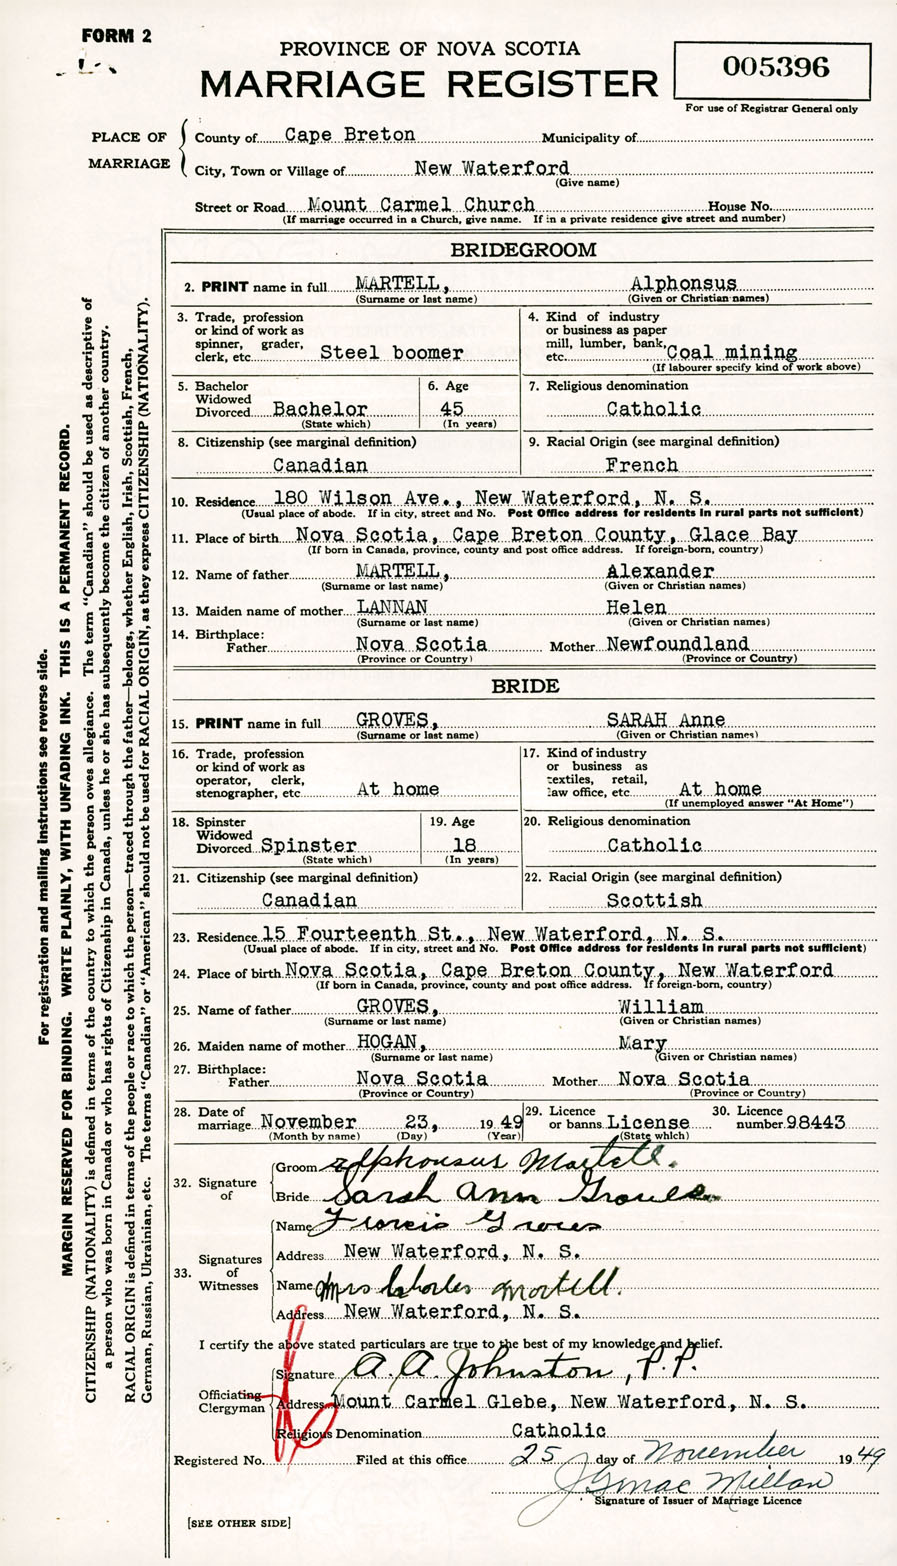 FORM 2
PROVINCE OF NOVA SCOTIA
MARRIAGE REGISTER
005396
For use of Registrar General only
PLACE OF MARRIAGE
County of Cape Breton Municipality of
City, Town or Village of New Waterford
(Give name)
Street or Road Mount Carmel Church House No.
(If marriage occurred in a Church, give name. If in a private residence give street and number)
BRIDEGROOM
2. PRINT name in full MARTELL, Alphonsus
(Surname or last name) (Given or Christian names)
3. Trade, profession
or kind of work as
spinner, grader,
clerk, etc. Steel boomer
4. Kind of industry
or business as paper
mill, lumber, bank,
etc. Coal mining
(If labourer specify kind of work above)
5. Bachelor
Widowed
Divorced Bachelor
(State which)
6. Age
45
(In years)
7. Religious denomination
Catholic
8. Citizenship (see marginal definition)
Canadian
9. Racial Origin (see marginal definition)
French
10. Residence 180 Wilson Ave., New Waterford, N. S.
(Usual place of abode. If in city, street and No. Post Office address for residents in rural parts not sufficient)
11. Place of birth Nova Scotia, Cape Breton County, Glace Bay
(If born in Canada, province, county and post office address. If foreign-born, country)
12. Name of father MARTELL, Alexander
(Surname or last name) (Given or Christian names)
13. Maiden name of mother LANNAN Helen
(Surname or last name) (Given or Christian names)
14. Birthplace:
Father Nova Scotia Mother Newfoundland
(Province or Country) (Province or Country)
BRIDE
15. PRINT name in full GROVES, SARAH Anne
(Surname or last name) (Given or Christian names)
16. Trade, profession
or kind of work as
operator, clerk,
stenographer, etc. At home
17. Kind of industry
or business as
textiles, retail,
law office, etc. At home
(If unemployed answer "At Home")
18. Spinster
Widowed
Divorced Spinster
(State which)
19. Age
18
(In years)
20. Religious denomination
Catholic
21. Citizenship (see marginal definition)
Canadian
22. Racial Origin (see marginal definition)
Scottish
23. Residence 15 Fourteenth St., New Waterford, N. S.
(Usual place of abode. If in city, street and No. Post Office address for residents in rural parts not sufficient)
24. Place of birth Nova Scotia, Cape Breton County, New Waterford
(If born in Canada, province, county and post office address. If foreign-born, country)
25. Name of father GROVES, William
(Surname or last name) (Given or Christian names)
26. Maiden name of mother HOGAN, Mary
(Surname or last name) (Given or Christian names)
27. Birthplace:
Father Nova Scotia Mother Nova Scotia
(Province or Country) (Province or Country)
28. Date of
marriage November 23, 1949
(Month by name) (Day) (Year)
29. Licence
or banns License
(State which)
30. Licence
number 98443
32. Signature of
Groom Alphonsus Martell.
Bride Sarah Ann Groves
33. Signatures of Witnesses
Name Francis Groves
Address New Waterford, N. S.
Name Mrs Charles Martell.
Address New Waterford, N. S.
I certify the above stated particulars are true to the best of my knowledge and belief.
Officiating Clergyman
Signature A. A. Johnston, P.P.
Address Mount Carmel Glebe, New Waterford, N. S.
Religious Denomination Catholic
Registered No. Filed at this office 25 day of November 1949
J G MacMillan
Signature of Issuer of Marriage Licence
[SEE OTHER SIDE]
For registration and mailing instructions see reverse side.
MARGIN RESERVED FOR BINDING. WRITE PLAINLY, WITH UNFADING INK. THIS IS A PERMANENT RECORD.
CITIZENSHIP (NATIONALITY) is defined in terms of the country to which the person owes allegiance. The term "Canadian" should be used as descriptive of
a person who was born in Canada or who has rights of Citizenship in Canada, unless he or she has subsequently become the citizen of another country.
RACIAL ORIGIN is defined in terms of the people or race to which the person—traced through the father—belongs, whether English, Irish, Scottish, French,
German, Russian, Ukrainian, etc. The terms "Canadian" or "American" should not be used for RACIAL ORIGIN, as they express CITIZENSHIP (NATIONALITY).